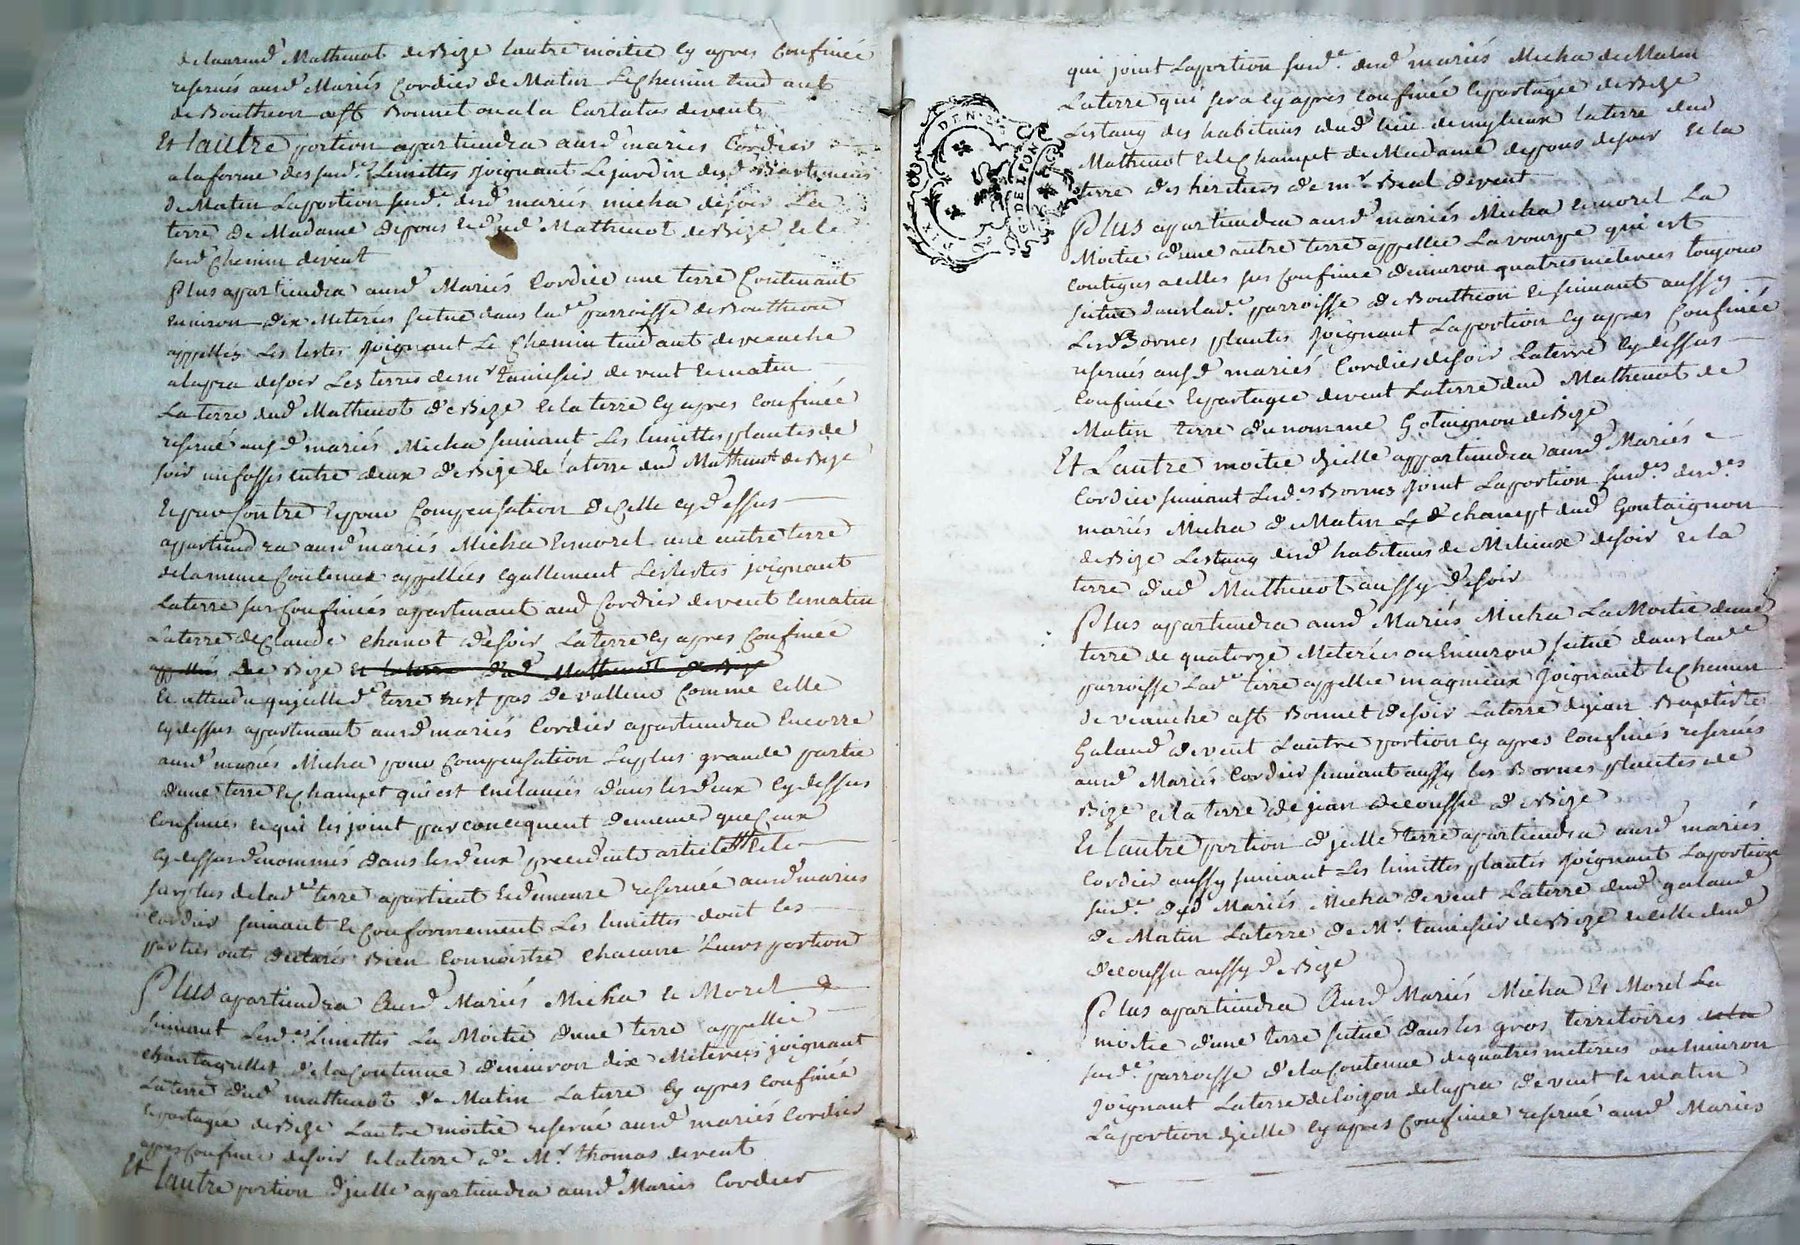 dudit Mathevot de Bize lautre moitie cy apres Confinée
reservés ausd. Mariés Cordier de Matin Le Chemin tendant
de Boutheon a st Bonnet ou a la de vent
Et lautre portion apartiendra ausd. mariés Cordier
a la forme des susd. Limittes joignant Le jardin desd.
de Matin La portion susd. desd. mariés micha de soir La
terre de Madame depons dudit Mathevot de Bize et le
susd. Chemin de vent
Plus apartiendra ausd. Mariés Cordier une terre Contenant
Environ dix Meterées scitué dans lad. parroisse de Boutheon
appellée Les joignant Le Chemin tendant de veauche
a lapra de soir Les terres de mr. tamisier de vent et matin
La terre dud. Mathevot de Bize et la terre cy apres Confinée
reservé ausd. mariés Micha suivant Les limittes plantés de
soir un fossé entre deux de Bize et la terre dud. Mathevot de Bize
et par Contre et pour Compensation de Celle cy dessus
appartiendra ausd. mariés Micha et morel une autre terre
de la meme Contenue appellées egallement joignant
La terre sus Confinées apartenant aud. Cordier de vent et matin
La terre de Claude Chanot de soir La terre cy apres Confinée
de Bize et la terre dud. Mathevot de Bize
Et attendu qu'jcelle d. terre n'est pas de valleur Comme Celle
cy dessus apartenant ausd. mariés Cordier apartiendra Encorre
ausd. mariés Micha pour Compensation La plus grande partie
d'une terre et champt qui est enclavés dans les deux cy dessus
Confinées et qui les joint par concequent de meme que Ceux
cy dessus denommés dans les deux precedents article et le
surplus de lad. terre apartient et demeure reservée ausd. mariés
Cordier suivant et Conformement Les limittes dont les
parties onts declarés Bien Connoistre Chacune Leurs portion
Plus apartiendra Ausd. Mariés Micha et Morel
suivant Lesd. Limittes La Moitié d'une terre appellée
de la Contenue d'environ dix Meterées joignant
La terre dud. mathevot de Matin La terre cy apres Confinée
et partagée de Bize Lautre moitié reservé ausd. mariés Cordier
apres Confinée de soir et la terre de Mr. thomas de vent
Et lautre portion d'jcelle apartiendra ausd. Mariés Cordier
qui joint La portion susd. desd. mariés Micha de Matin
La terre qui sera cy apres Confinée et partagée de Bize
Lestang des habitans dud. lieu de mylieux la terre dud.
Mathevot et le Champt de Madame depons de soir et la
terre des heritiers de mr. Beal de vent
Plus apartiendra ausd. mariés Micha et morel La
Moitié d'une autre terre appellée La vourze qui est
Contigue a celles sus Confinée d'environ quatres meterées toujours
scitué dans lad. parroisse de Boutheon et suivant aussy
Lesd. Bornes plantés joignant La portion cy apres Confinée
reservés ausd. mariés Cordier de soir La terre cy dessus
Confinée et partagée de vent La terre dud. Mathevot de
Matin terre du nommé Gotaignon de Bize
Et Lautre moitié d'jcelle appartiendra ausd. Mariés
Cordier suivant Lesd. Bornes joint La portion susd. desd.
mariés Micha de Matin le champt dud. Gontaignon
de Bize Lestang desd. habitans de Milieux de soir et la
terre dud. Mathevot aussy de soir
Plus apartiendra ausd. Mariés Micha La Moitié d'une
terre de quatorze Meterées ou Environ scitué dans lad.
parroisse Lad. terre appellée magnieux joignant le Chemin
de veauche a st Bonnet de soir La terre de jean Baptiste
Galand de vent Lautre portion cy apres Confinés reservés
ausd. Mariés Cordier suivant aussy les Bornes plantés de
Bize et la terre de jean decousse de Bize
Et lautre portion d'jcelle terre apartiendra ausd. mariés
Cordier aussy suivant Les limittes plantés joignant La portion
susd. desd. Mariés Micha de vent La terre dud. galand
de Matin La terre de Mr. tamisier de Bize et celle dud.
decousse aussy de Bize
Plus apartiendra Ausd. Mariés Micha Et Morel La
moitié d'une terre scitué dans les gros territoires et la
susd. parroisse de la Contenue de quatres meterées ou Environ
joignant La terre de de lapra de vent et matin
La portion d'jcelle cy apres Confinée reservé ausd. Mariés